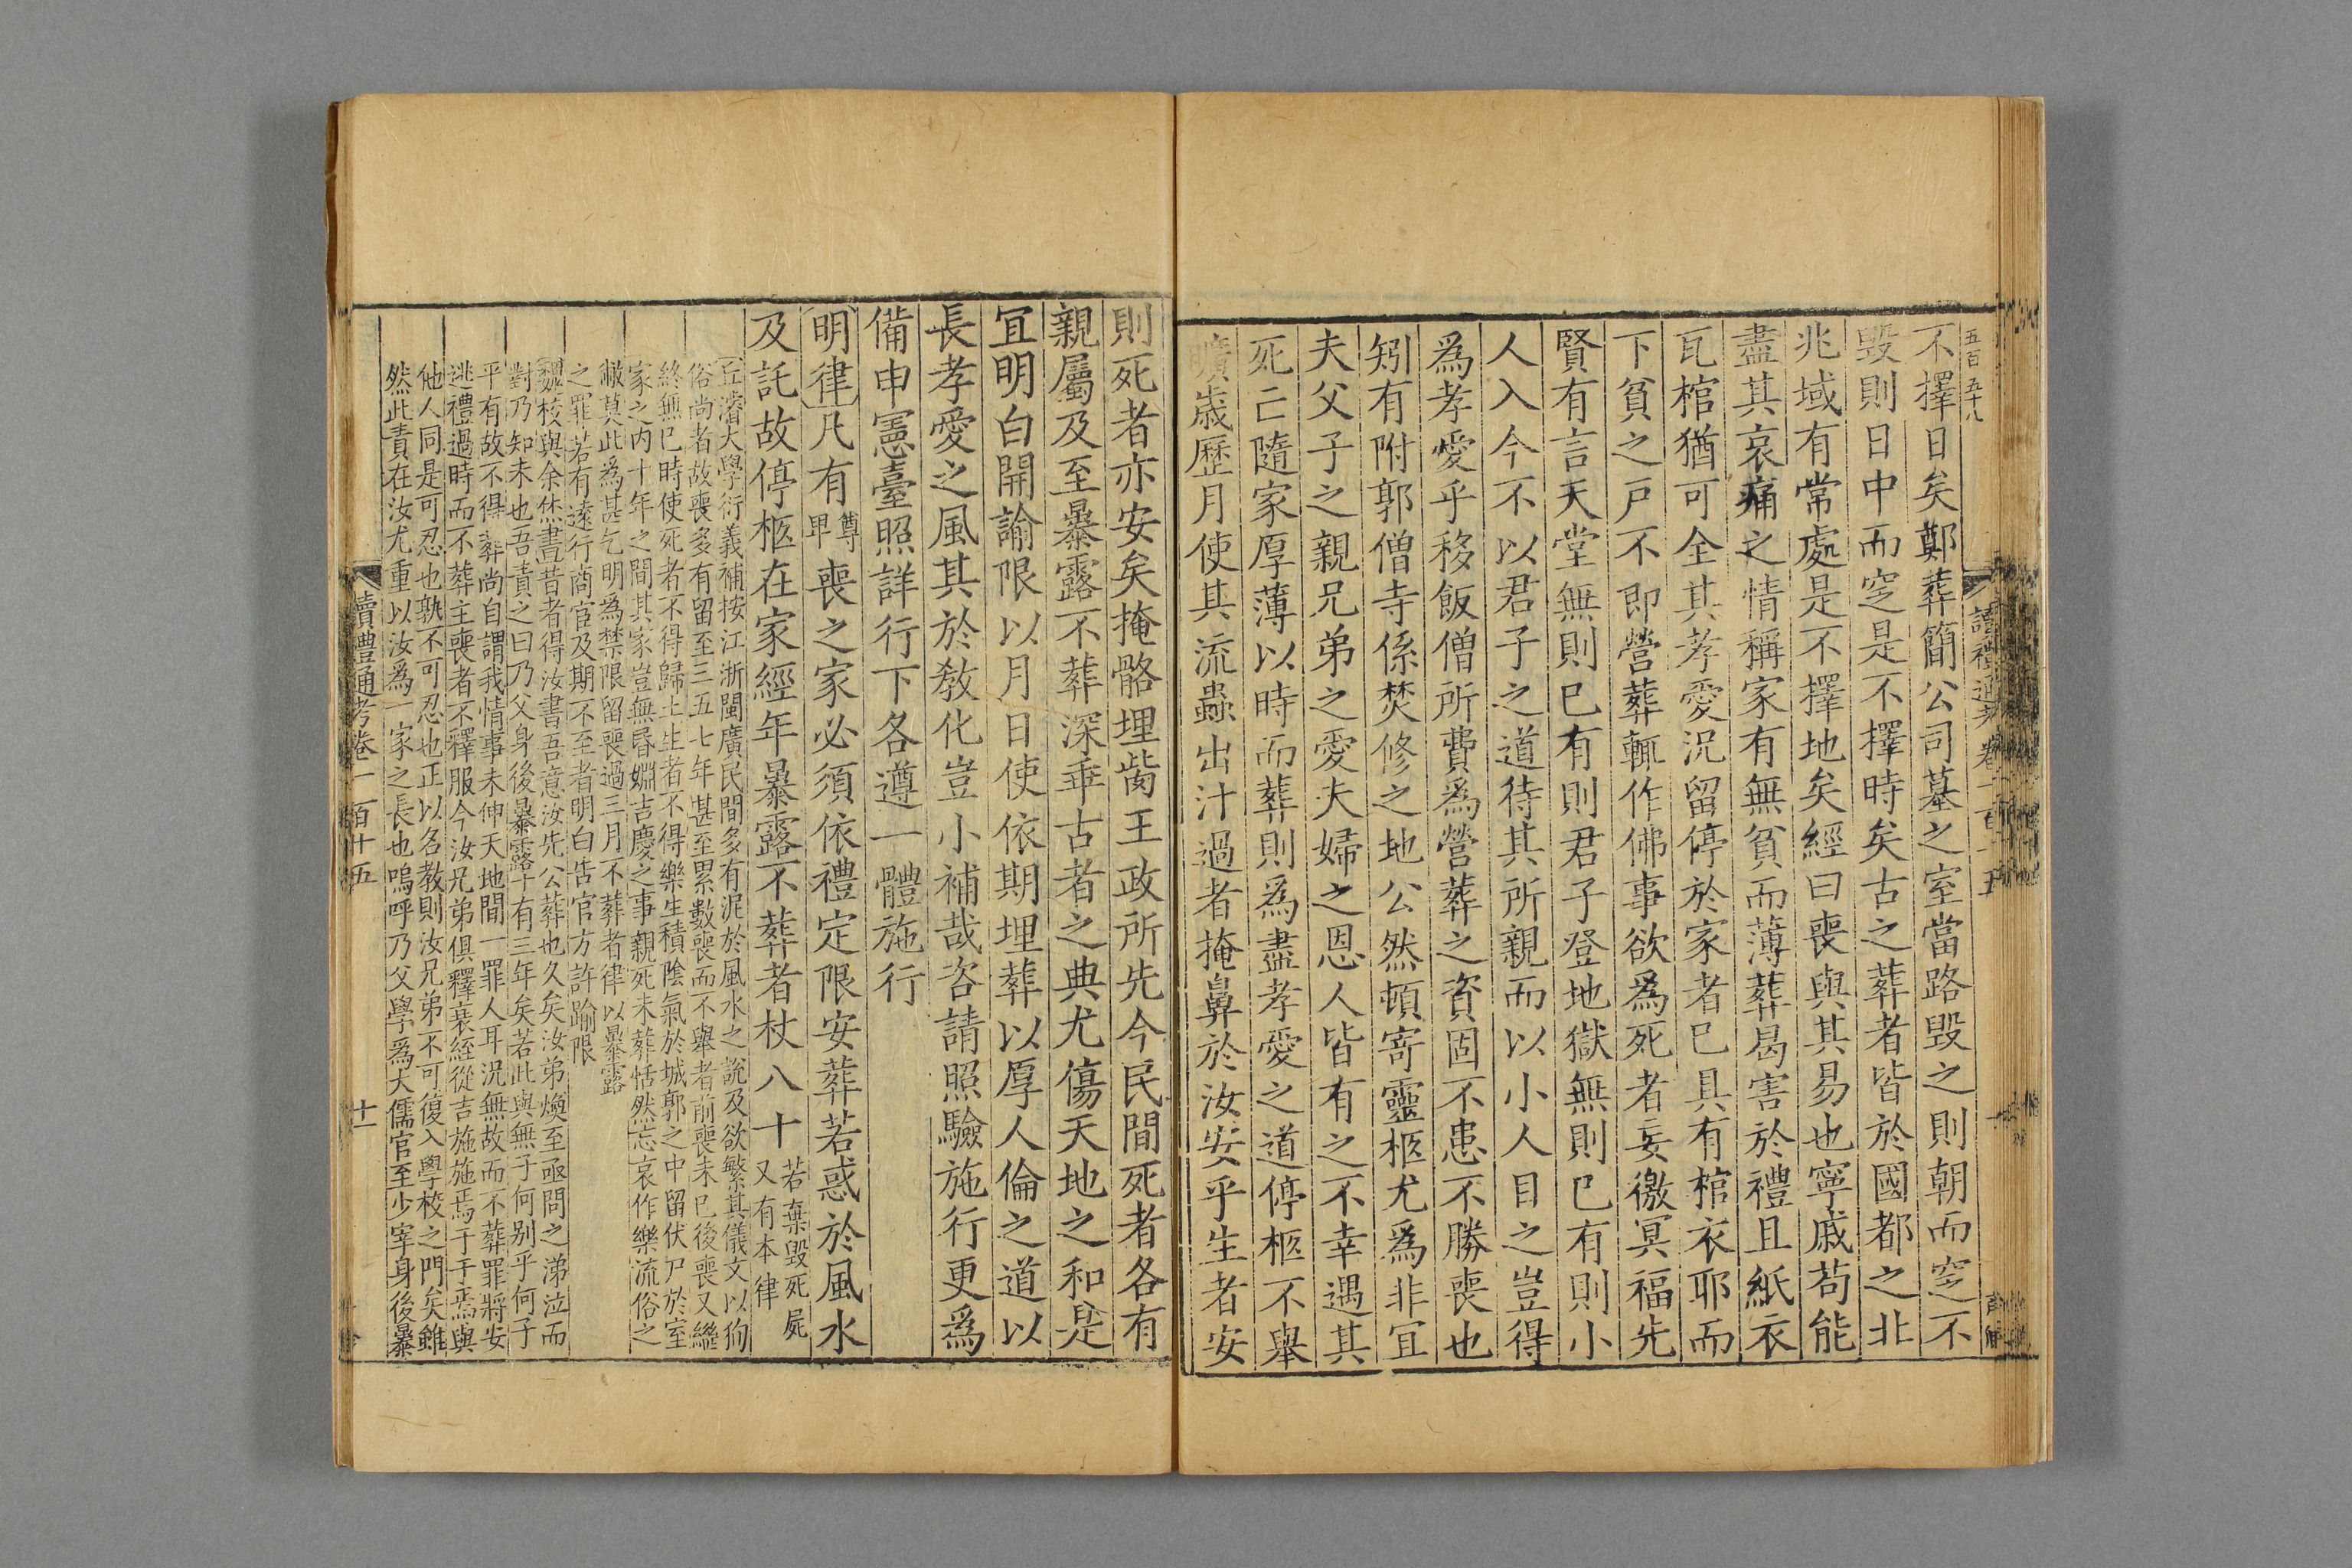 五百五十八
不擇日矣鄭葬簡公司墓之室當路毀之則朝而窆不
毀則日中而窆是不擇時矣古之葬者皆於國都之北
兆域有常處是不擇地矣經曰喪與其易也寧戚苟能
盡其哀痛之情稱家有無貧而薄葬曷害於禮且紙衣
瓦棺猶可全其孝愛況留停於家者已具有棺衣耶而
下貧之戸不即營葬輒作佛事欲爲死者妄徼冥福先
賢有言天堂無則已有則君子登地獄無則已有則小
人入今不以君子之道待其所親而以小人目之豈得
爲孝愛乎移飯僧所費爲營葬之資固不患不勝喪也
矧有附郭僧寺係焚修之地公然頓寄靈柩尤爲非宜
夫父子之親兄弟之愛夫婦之恩人皆有之不幸遇其
死亡隨家厚薄以時而葬則爲盡孝愛之道停柩不舉
曠歳歷月使其流蟲出汁過者掩鼻於汝安乎生者安
則死者亦安矣掩骼埋胔王政所先今民間死者各有
親屬及至暴露不葬深乖古者之典尤傷天地之和是
宜明白開諭限以月日使依期埋葬以厚人倫之道以
長孝愛之風其於敎化豈小補哉咨請照驗施行更爲
備申憲臺照詳行下各遵一體施行
明律凡有尊卑喪之家必須依禮定限安葬若惑於風水
及託故停柩在家經年暴露不葬者杖八十若棄毀死屍又有本律
丘濬大學衍義補按江浙閩廣民間多有泥於風水之說及欲繁其儀文以狥
俗尚者故喪多有留至三五七年甚至累數喪而不舉者前喪未已後喪又繼
終無已時使死者不得歸土生者不得樂生積陰氣於城郭之中留伏尸於室
家之内十年之間其家豈無昏婣吉慶之事親死未葬恬然忘哀作樂流俗之
敝莫此爲甚乞明爲禁限留喪過三月不葬者律以暴露
之罪若有遠行商官及期不至者明白告官方許踰限
魏校與余烋書昔者得汝書吾意汝先公葬也久矣汝弟煥至亟問之涕泣而
對乃知未也吾責之曰乃父身後暴露十有三年矣若此與無子何别乎何子
平有故不得葬尚自謂我情事未伸天地間一罪人耳況無故而不葬罪將安
逃禮過時而不葬主喪者不釋服今汝兄弟俱釋衰絰從吉施施焉于于焉與
他人同是可忍也孰不可忍也正以名教則汝兄弟不可復入學校之門矣雖
然此責在汝尤重以汝爲一家之長也嗚呼乃父學爲大儒官至少宰身後暴
讀禮通考卷一百十五
十一